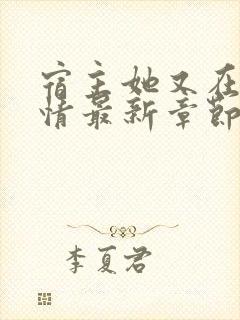 宿主她又在
情最新章節
李夏君